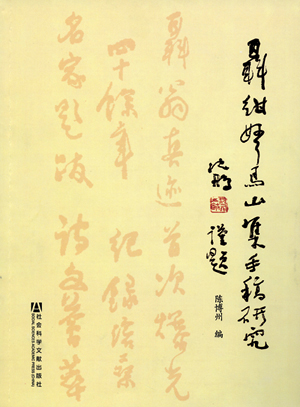 聶紺弩馬山集手稿研究
沈鹏
謹题
陈博州 编
聶翁真迹首次爆光
四十餘年 纪錄滄桑
名家题跋 詩文薈萃
社会科学文献出版社
SOCIAL SCIENCES ACADEMIC PRESS (CHINA)